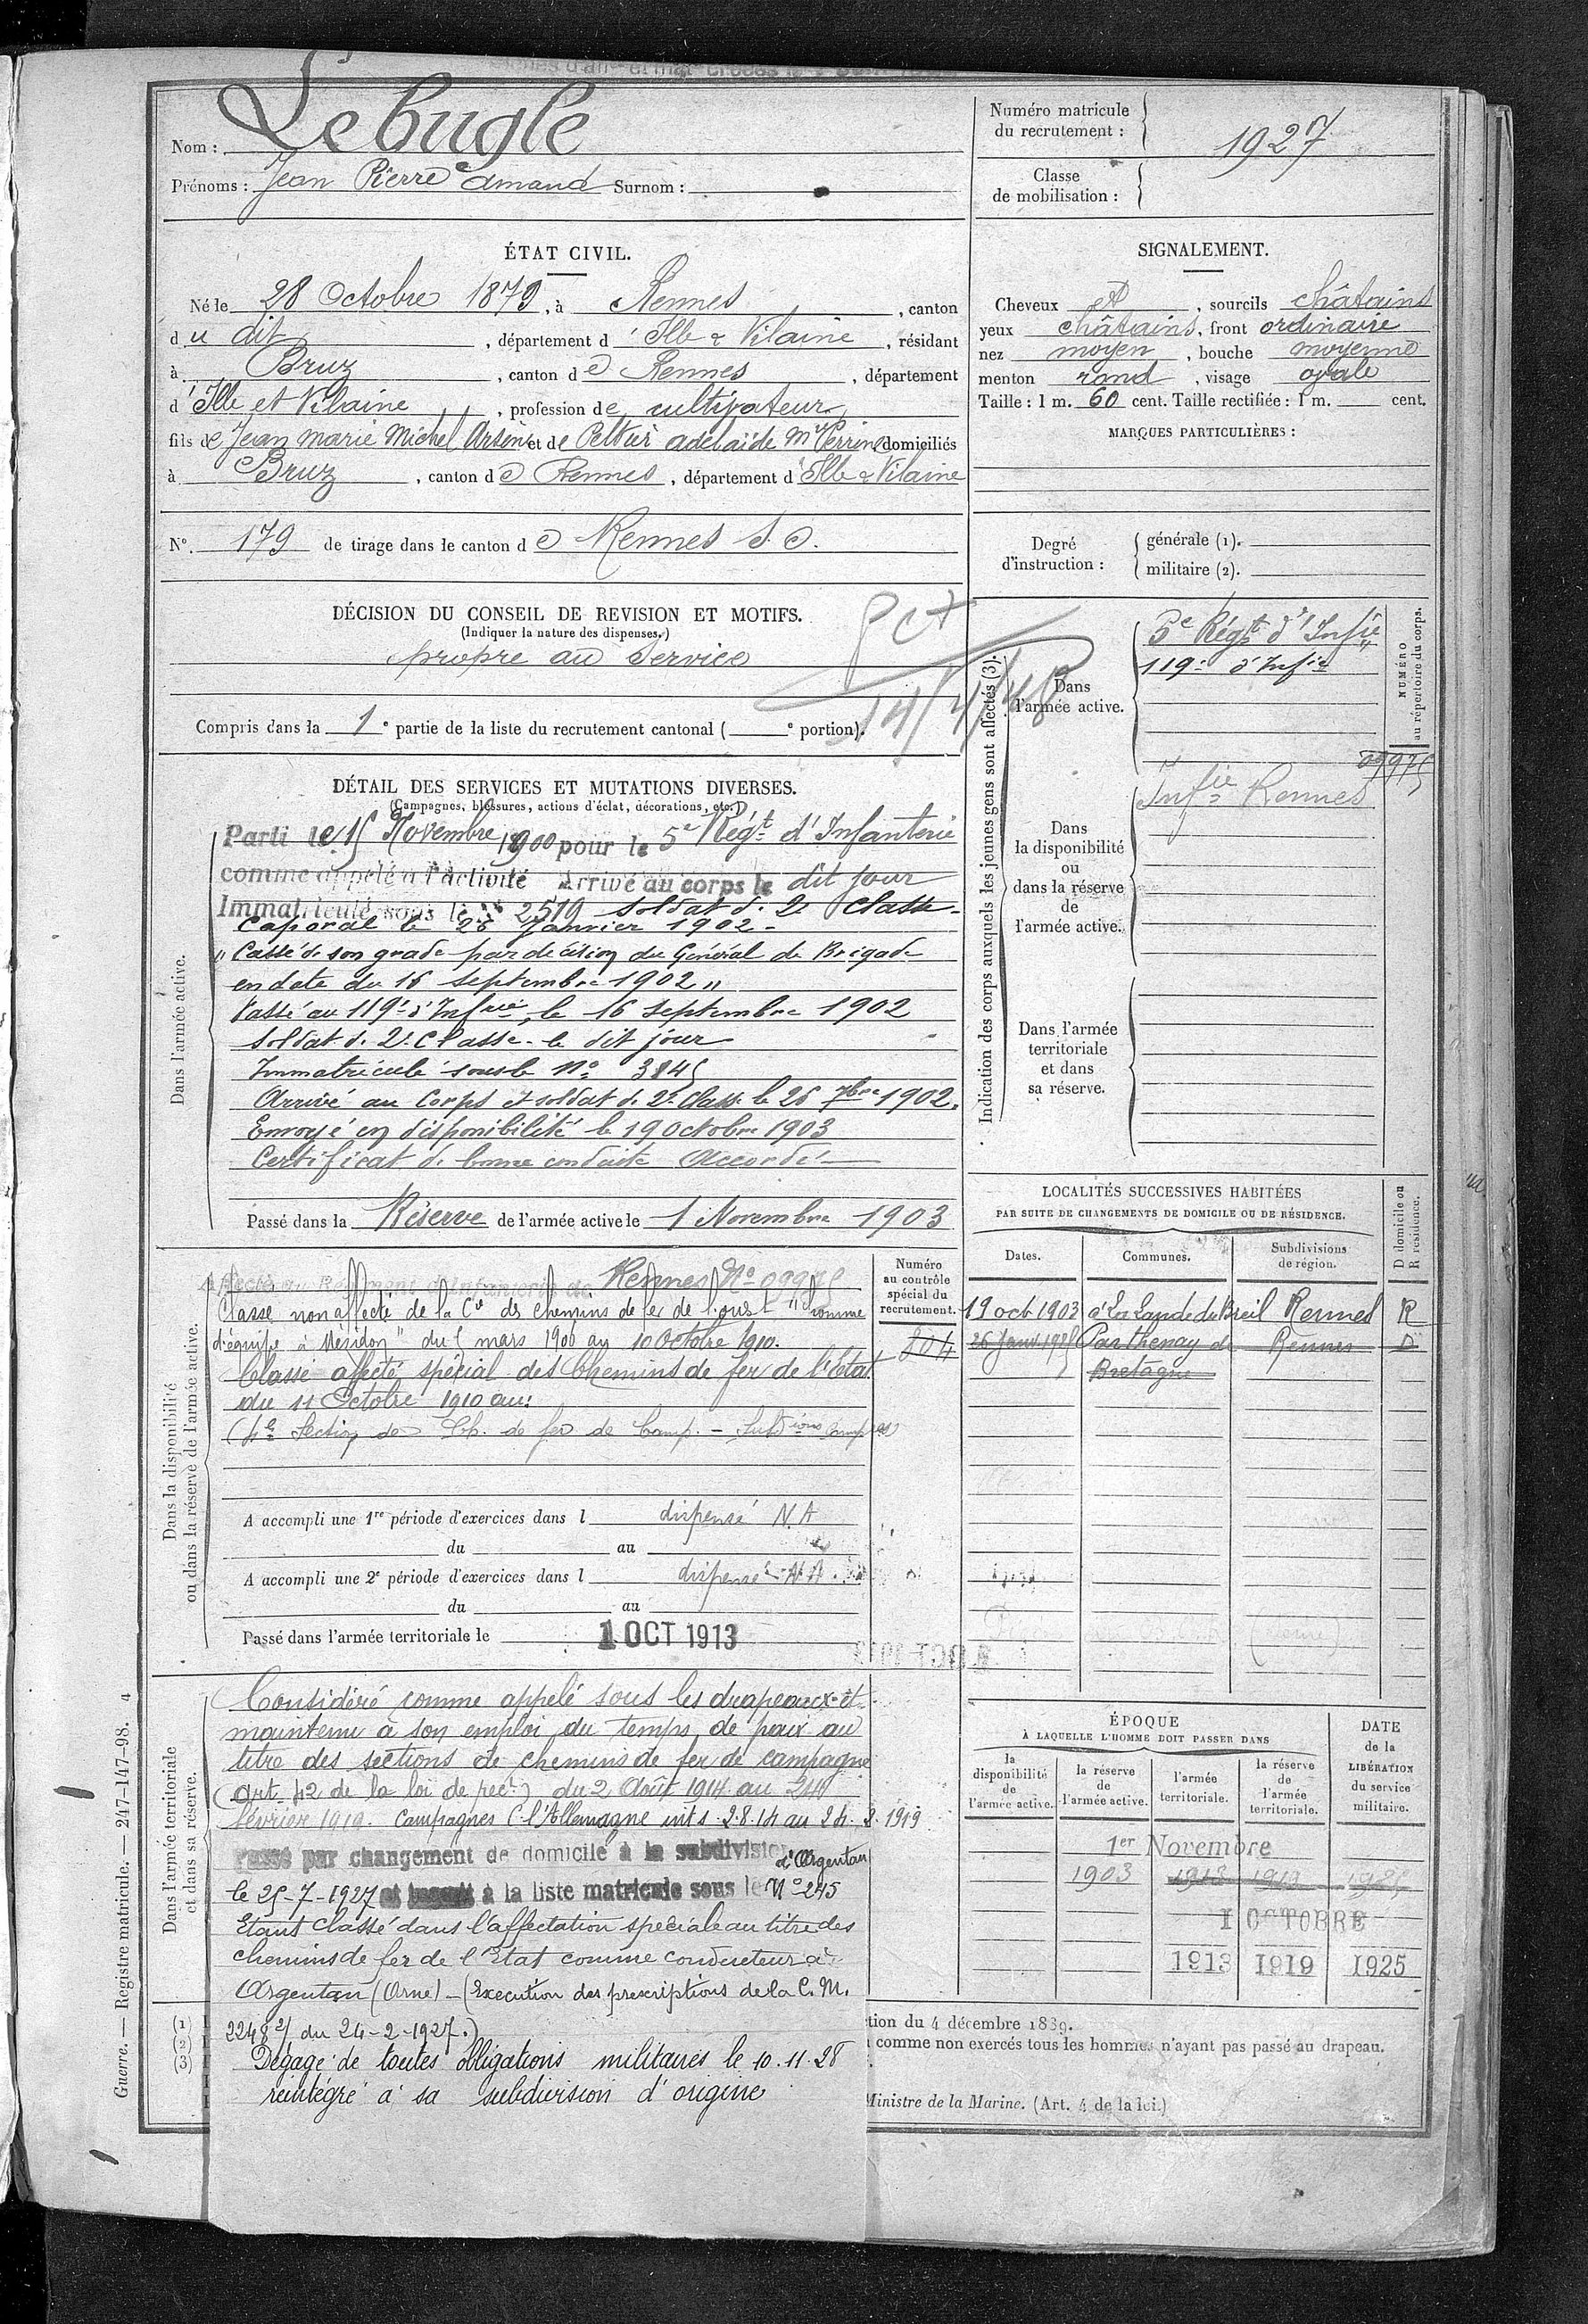 Nom : Lebugle
Prénoms : Jean Pierre Amand Surnom :
Numéro matricule
du recrutement : 1927
Classe
de mobilisation :
ÉTAT CIVIL.
Né le 28 Octobre 1879, à Rennes, canton
du dit, département d'Ille & Vilaine, résidant
à Bruz, canton de Rennes, département
d'Ille et Vilaine, profession de cultivateur
fils de Jean Marie Michel Arsène et de Peltier adelaïde Mie Perrine domiciliés
à Bruz, canton de Rennes, département d'Ille & Vilaine
N°. 179 de tirage dans le canton de Rennes S.O.
SIGNALEMENT.
Cheveux et, sourcils châtains
yeux châtains, front ordinaire
nez moyen, bouche moyenne
menton rond, visage ovale
Taille : 1 m. 60 cent. Taille rectifiée : 1 m. cent.
MARQUES PARTICULIÈRES :
Degré
d'instruction :
générale (1).
militaire (2).
DÉCISION DU CONSEIL DE REVISION ET MOTIFS.
(Indiquer la nature des dispenses.)
propre au service
Compris dans la 1e partie de la liste du recrutement cantonal ( e portion).
DÉTAIL DES SERVICES ET MUTATIONS DIVERSES.
(Campagnes, blessures, actions d'éclat, décorations, etc.)
Dans l'armée active.
Parti le 15 Novembre 1900 pour le 5e Régt d'Infanterie
comme appelé à l'activité Arrivé au corps le dit jour
Immatriculé sous le n° 2519 soldat de 2e classe
Caporal le 26 Janvier 1902 -
"Cassé de son grade par décision du Général de Brigade
en date du 16 septembre 1902"
Passé au 119e d'Infrie, le 16 septembre 1902
soldat de 2e classe le dit jour
Immatriculé sous le N° 3845
Arrivé au corps & soldat de 2e classe le 26 7bre 1902.
Envoyé en disponibilité le 19 Octobre 1903
Certificat de bonne conduite Accordé
Passé dans la Réserve de l'armée active le 1 Novembre 1903
Indication des corps auxquels les jeunes gens sont affectés (3).
Dans
l'armée active.
5e Régt d'Infie
119e d'Infie
NUMÉRO
au répertoire du corps.
09975
Dans
la disponibilité
ou
dans la réserve
de
l'armée active.
Infie Rennes
Dans l'armée
territoriale
et dans
sa réserve.
Dans la disponibilité
ou dans la réserve de l'armée active.
Affecté au Régiment d'Infanterie de Rennes N° 09975
Classé non affecté de la Cie des chemins de fer de l'ouest "homme
d'équipe à Mézidon" du 5 mars 1900 au 10 Octobre 1910.
Classé affecté spécial des Chemins de fer de l'Etat
du 11 Octobre 1910 au:
(4e Section de Ch. de fer de Camp. - Subdions Comp es)
Numéro
au contrôle
spécial du
recrutement.
204
A accompli une 1re période d'exercices dans l dispensé N.A
du au
A accompli une 2e période d'exercices dans l dispensé N.A.
du au
Passé dans l'armée territoriale le 1 OCT 1913
LOCALITÉS SUCCESSIVES HABITÉES
PAR SUITE DE CHANGEMENTS DE DOMICILE OU DE RÉSIDENCE.
Dates. Communes. Subdivisions
de région.
D domicile ou
R résidence.
19 oct 1903 à La Lande du Breil Rennes R
26 Janv 1925 Parthenay de Rennes D
Bretagne
Dans l'armée territoriale
et dans sa réserve.
Considéré comme appelé sous les drapeaux et
maintenu à son emploi du temps de paix au
titre des sections de chemins de fer de campagne
(art. 42 de la loi de rect.) du 2 Août 1914 au 24
février 1919. Campagnes C. l'Allemagne int s. 2.8.14 au 24.2.1919
Passé par changement de domicile à la subdivision d'Argentan
le 25-7-1927 et inscrit à la liste matricule sous le N° 245
Etant classé dans l'affectation spéciale au titre des
chemins de fer de l'Etat comme conducteur à
Argentan (Orne) - (Exécution des prescriptions de la C.M.
2248 2/ du 24-2-1927.)
Dégagé de toutes obligations militaires le 10.11.28
réintégré à sa subdivision d'origine
ÉPOQUE
À LAQUELLE L'HOMME DOIT PASSER DANS
la
disponibilité
de
l'armée active.
la réserve
de
l'armée active.
l'armée
territoriale.
la réserve
de
l'armée
territoriale.
DATE
de la
LIBÉRATION
du service
militaire.
1er Novembre
1903 1913 1919 1925
1 OCTOBRE
1913 1919 1925
(1)
(2)
(3)
tion du 4 décembre 1889.
comme non exercés tous les hommes n'ayant pas passé au drapeau.
Ministre de la Marine. (Art. 4 de la loi.)
Guerre. — Registre matricule. — 247-147-98. 4